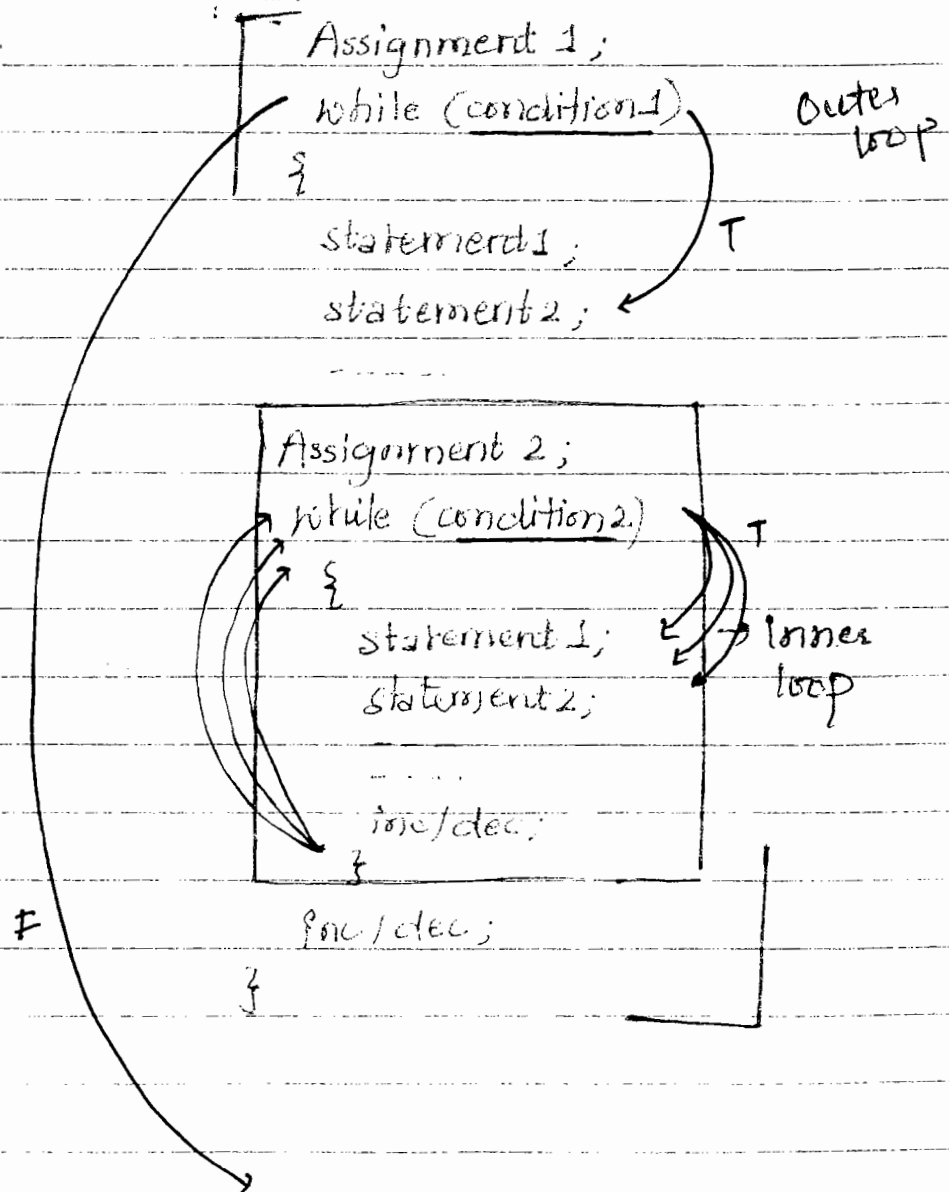 Assignment 1;
while (condition1)
Outer
loop
{
statement1;
T
statement2;
-------
Assignment 2;
while (condition2)
T
{
statement 1;
→ Inner
loop
statement2;
-----
inc/dec;
}
F
inc/dec;
}